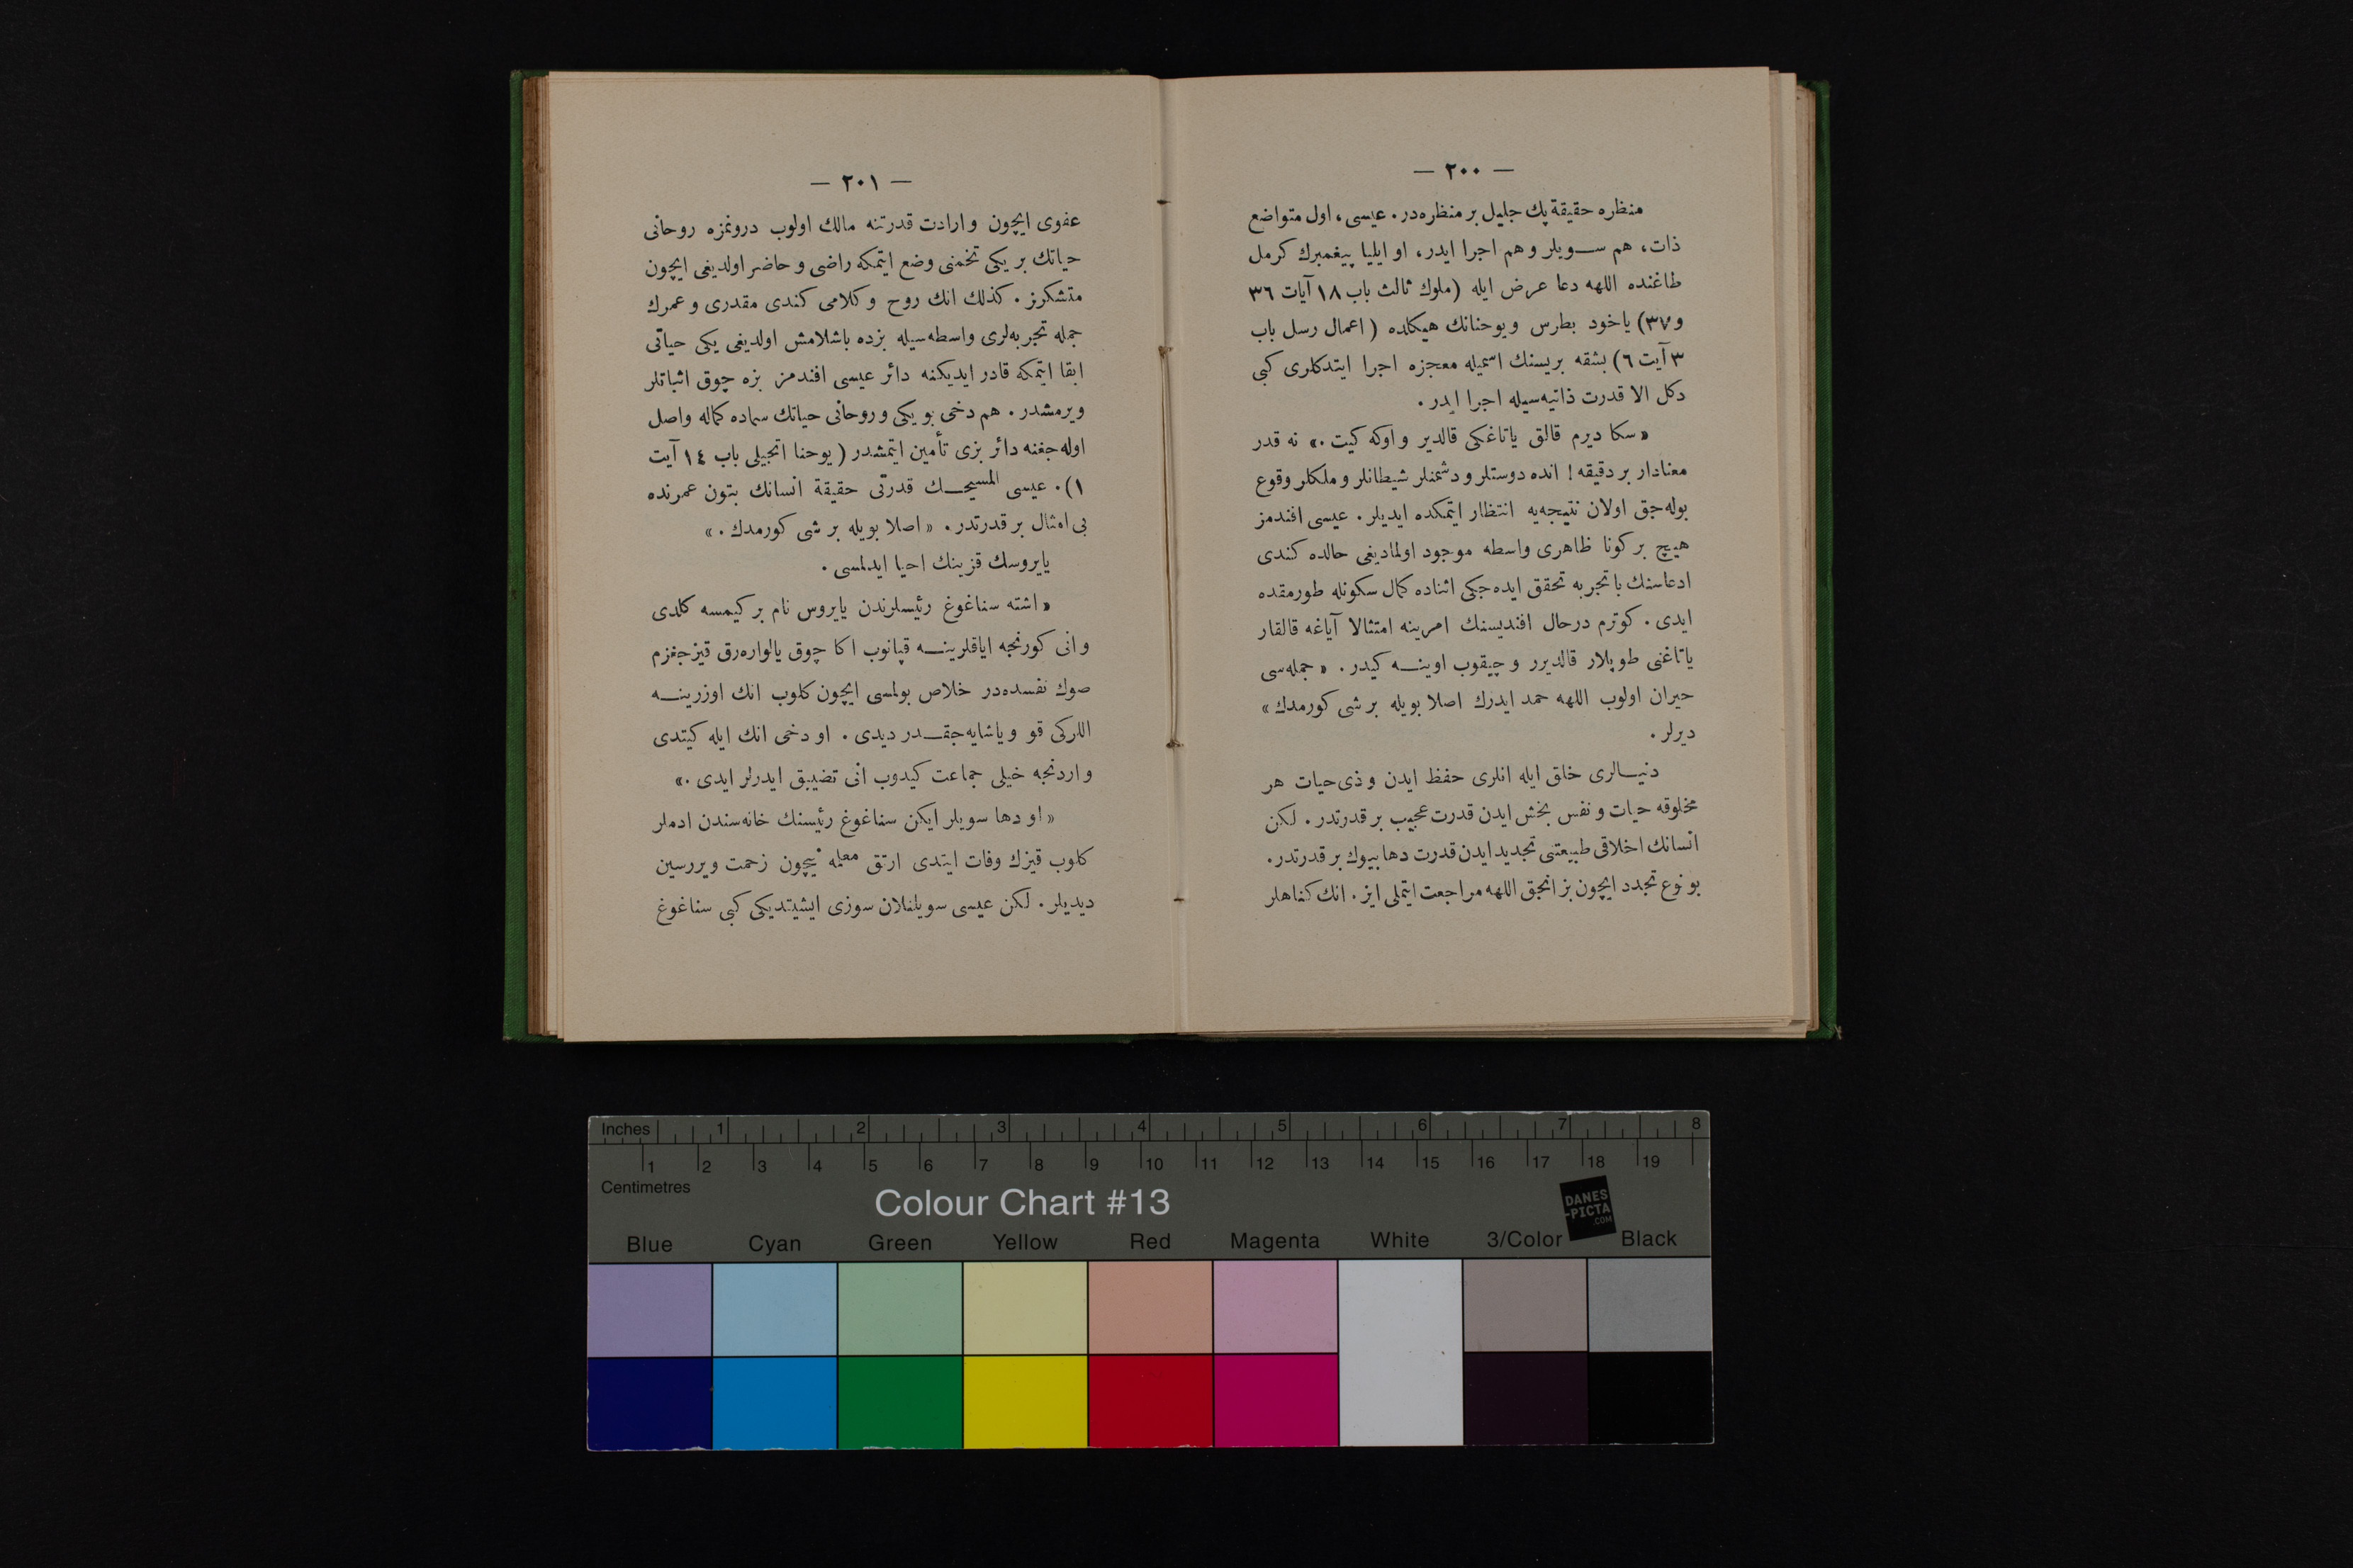 — ٢٠٠ —
منظره حقيقة پك جليل بر منظره‌در. عيسى، اول متواضع
ذات، هم ســويلر و هم اجرا ايدر، او ايليا پيغمبرك كرمل
طاغنده اللهه دعا عرض ايله (ملوك ثالث باب ١٨ آيات ٣٦
و٣٧) ياخود بطرس ويوحنانك هيكلده (اعمال رسل باب
٣ آيت ٦) بشقه بريسنك اسميله معجزه اجرا ايتدكلرى كبى
دكل الا قدرت ذاتيه‌سيله اجرا ايدر.
«سكا ديرم قالق ياتاغكى قالدير و اوكه كيت.» نه قدر
معنادار بر دقيقه! انده دوستلر و دشمنلر شيطانلر و ملكلر وقوع
بوله‌جق اولان نتيجه‌يه انتظار ايتمكده ايديلر. عيسى افندمز
هيچ بر كونا ظاهرى واسطه موجود اولماديغى حالده كندى
ادعاسنك با تجربه تحقق ايده‌جكى اثناده كمال سكونله طورمقده
ايدى. كوترم درحال افنديسنك امرينه امتثالا آياغه قالقار
ياتاغنى طوپلار قالديرر و چيقوب اوينــه كيدر. «جمله‌سى
حيران اولوب اللهه حمد ايدرك اصلا بويله بر شى كورمدك»
ديرلر.
دنيــالرى خلق ايله انلرى حفظ ايدن و ذى‌حيات هر
مخلوقه حيات و نفس بخش ايدن قدرت عجيب بر قدرتدر. لكن
انسانك اخلاقى طبيعتنى تجديد ايدن قدرت دها بيوك بر قدرتدر.
بو نوع تجدد ايچون بز انجق اللهه مراجعت ايتملى ايز. انك كناهلر
— ٢٠١ —
عفوى ايچون و ارادت قدرتنه مالك اولوب درونمزه روحانى
حياتك بر يكى تخمنى وضع ايتمكه راضى و حاضر اولديغى ايچون
متشكرز. كذلك انك روح و كلامى كندى مقدرى و عمرك
جمله تجربه‌لرى واسطه‌سيله بزده باشلامش اولديغى يكى حياتى
ابقا ايتمكه قادر ايديكنه دائر عيسى افندمز بزه چوق اثباتلر
ويرمشدر. هم دخى بو يكى و روحانى حياتك سماده كماله واصل
اوله‌جغنه دائر بزى تأمين ايتمشدر (يوحنا انجيلى باب ١٤ آيت
١). عيسى المسيحــك قدرتى حقيقة انسانك بتون عمرنده
بى امثال بر قدرتدر. «اصلا بويله بر شى كورمدك.»
يايروسك قزينك احيا ايدلمسى.
«اشته سناغوغ رئيسلرندن يايروس نام بر كيمسه كلدى
و انى كورنجه اياقلرينــه قپانوب اكا چوق يالواره‌رق قيزجغزم
صوك نفسده‌در خلاص بولمسى ايچون كلوب انك اوزرينــه
اللركى قو و ياشايه‌جقــدر ديدى. او دخى انك ايله كيتدى
و اردنجه خيلى جماعت كيدوب انى تضييق ايدرلر ايدى.»
«او دها سويلر ايكن سناغوغ رئيسنك خانه‌سندن ادملر
كلوب قيزك وفات ايتدى ارتق معلمه نيچون زحمت ويررسين
ديديلر. لكن عيسى سويلنلان سوزى ايشيتديكى كبى سناغوغ
Inches 1 2 3 4 5 6 7 8
1 2 3 4 5 6 7 8 9 10 11 12 13 14 15 16 17 18 19
Centimetres
Colour Chart #13
DANES
-PICTA
.COM
Blue Cyan Green Yellow Red Magenta White 3/Color Black